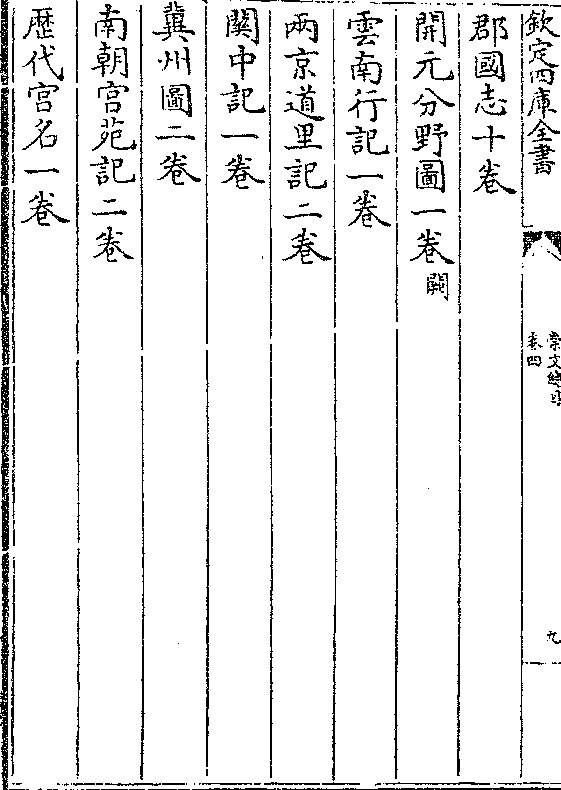 欽定四庫全書
崇文總目
卷四
九
郡國志十卷
開元分野圖一卷闕
雲南行記一卷
兩京道里記二卷
關中記一卷
冀州圖二卷
南朝宫苑記二卷
歴代宫名一卷